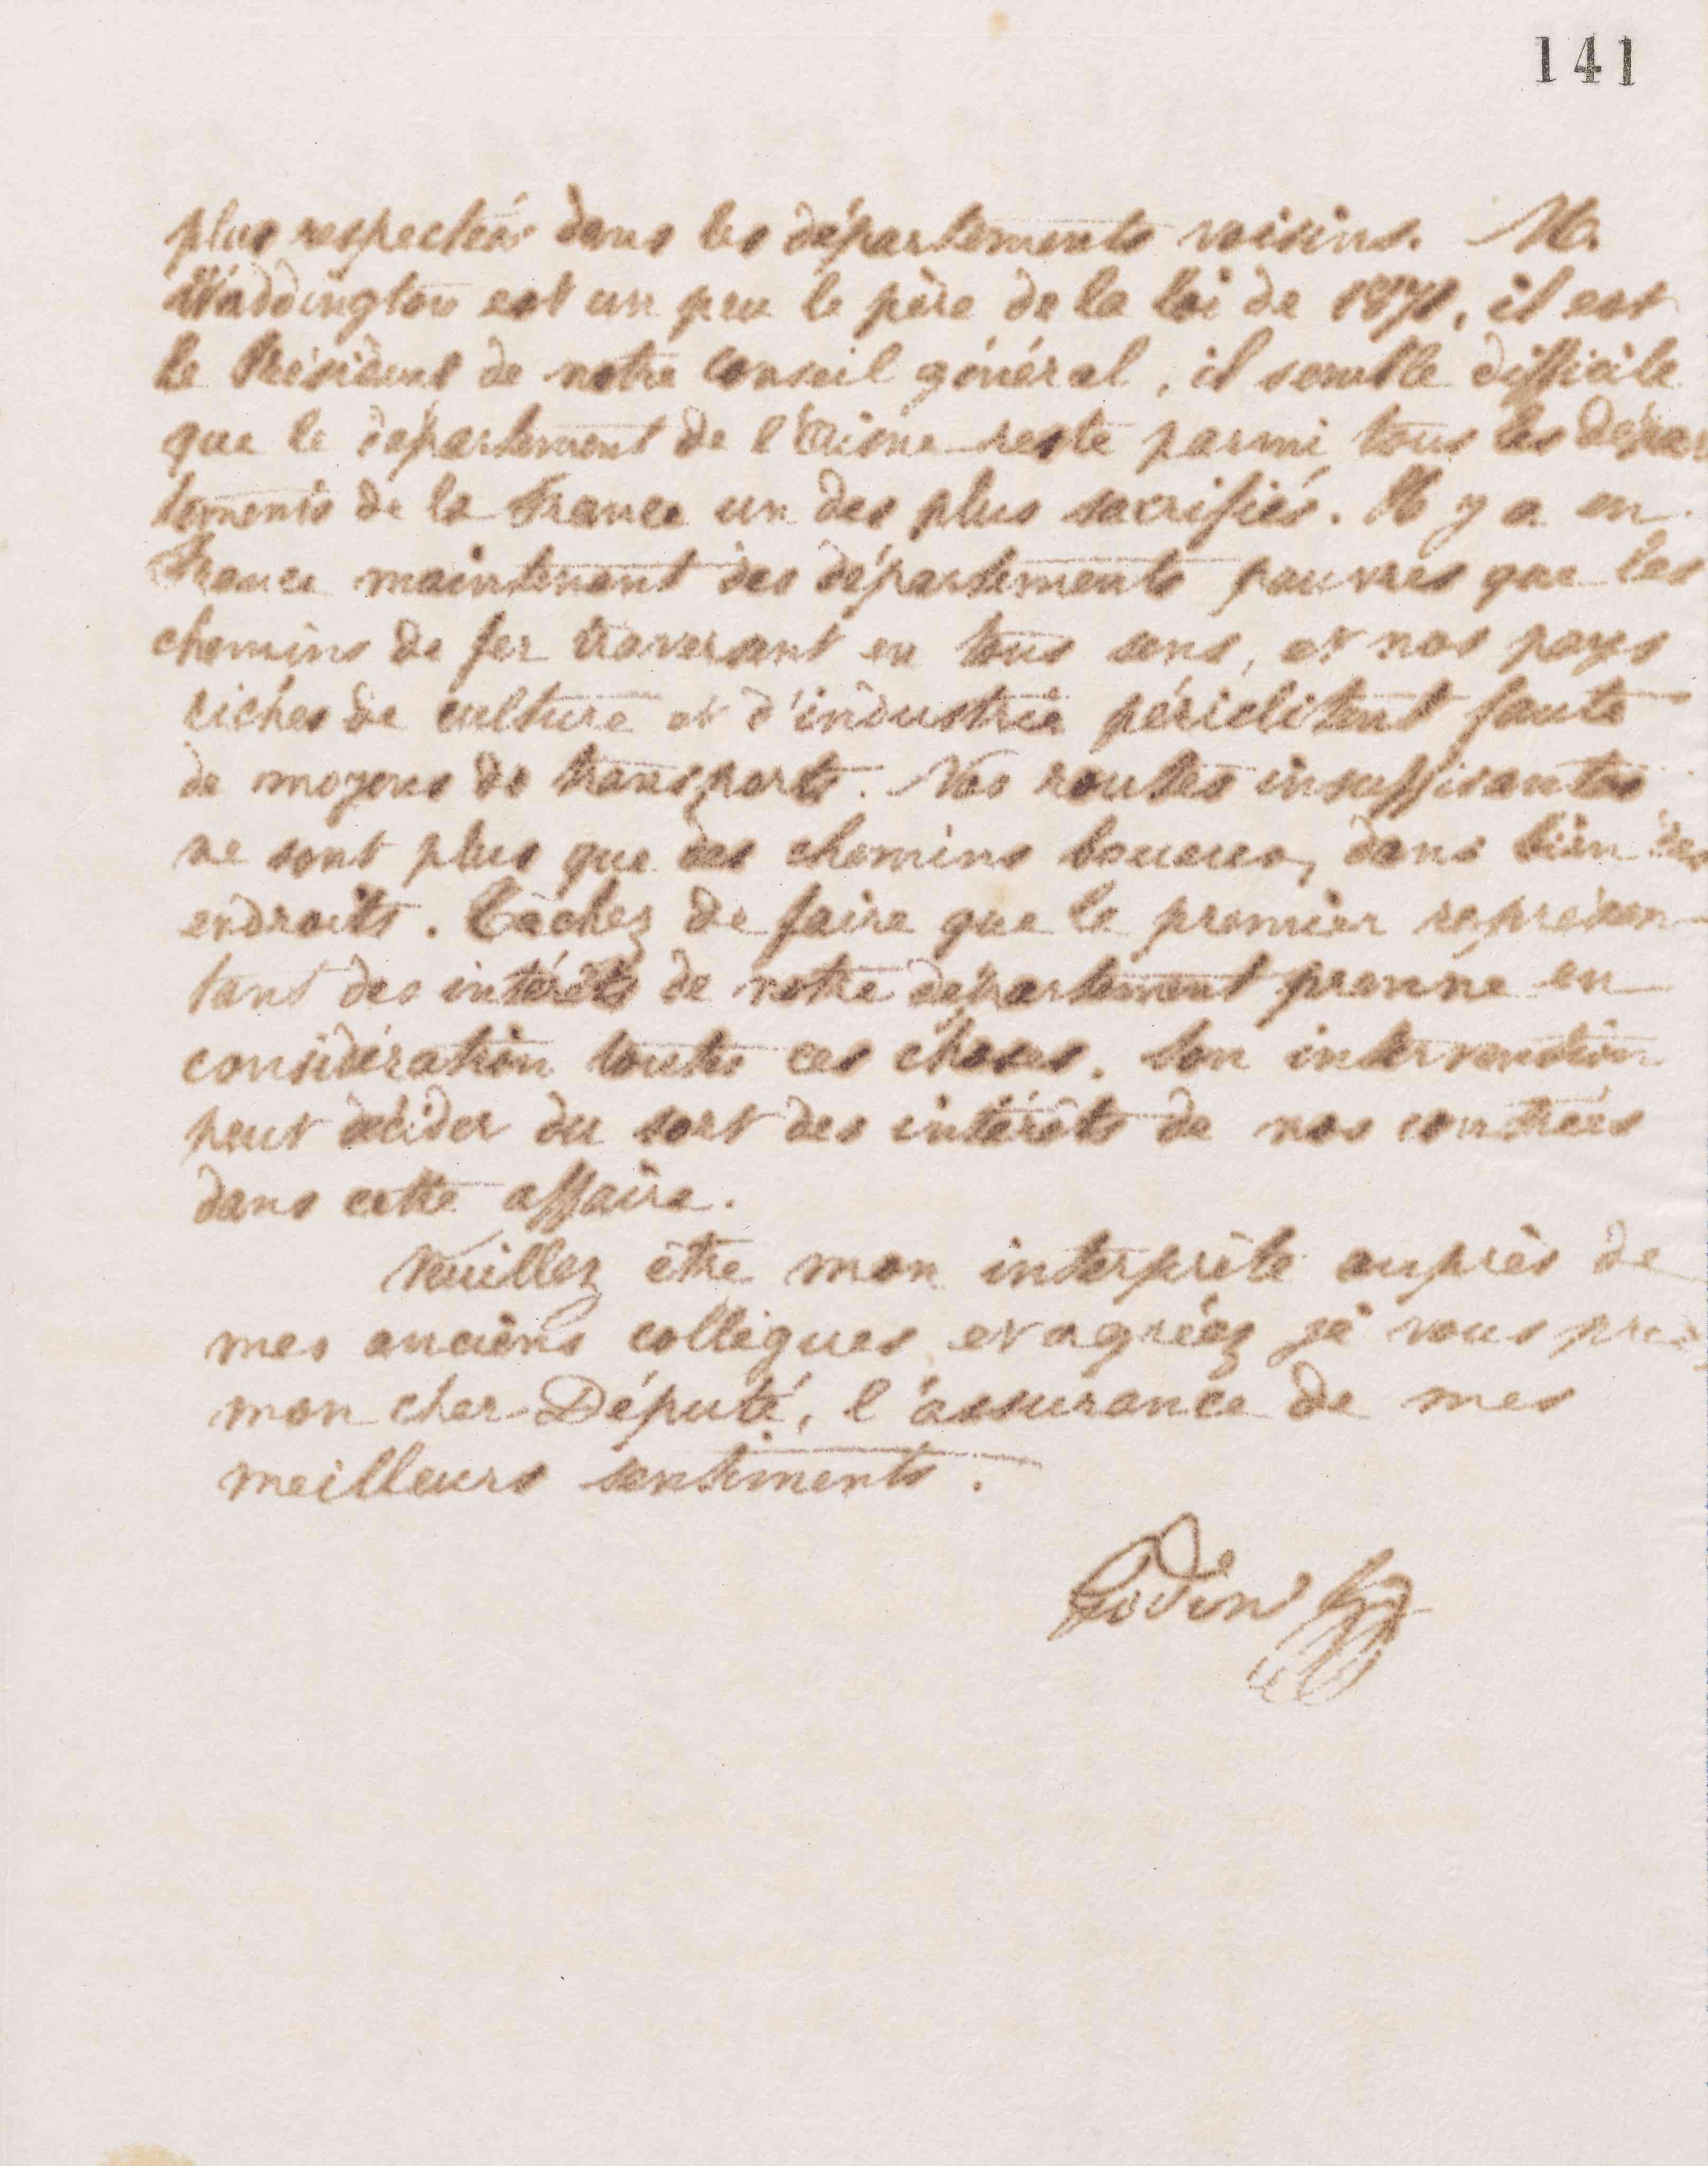 141
plus respectés dans les départements voisins. M.
Waddington est un peu le père de la loi de 1871, il est
le Président de notre Conseil général, il semble difficile
que le département de l'Aisne reste parmi tous les dépar
tements de la France un des plus sacrifiés. Il y a en
France maintenant des départements pauvres que les
chemins de fer traversent en tous sens, et nos pays
riches de culture et d'industrie périclitent faute
de moyens de transports. Nos routes insuffisantes
ne sont plus que des chemins boueux, dans bien des
endroits. Tâchez de faire que le premier représen
tant des intérêts de notre département prenne en
considération toutes ces choses. Son intervention
peut décider du sort des intérêts de nos contrées
dans cette affaire.
Veuillez être mon interprète auprès de
mes anciens collègues et agréez je vous prie
mon cher Député, l'assurance de mes
meilleurs sentiments.
Godin